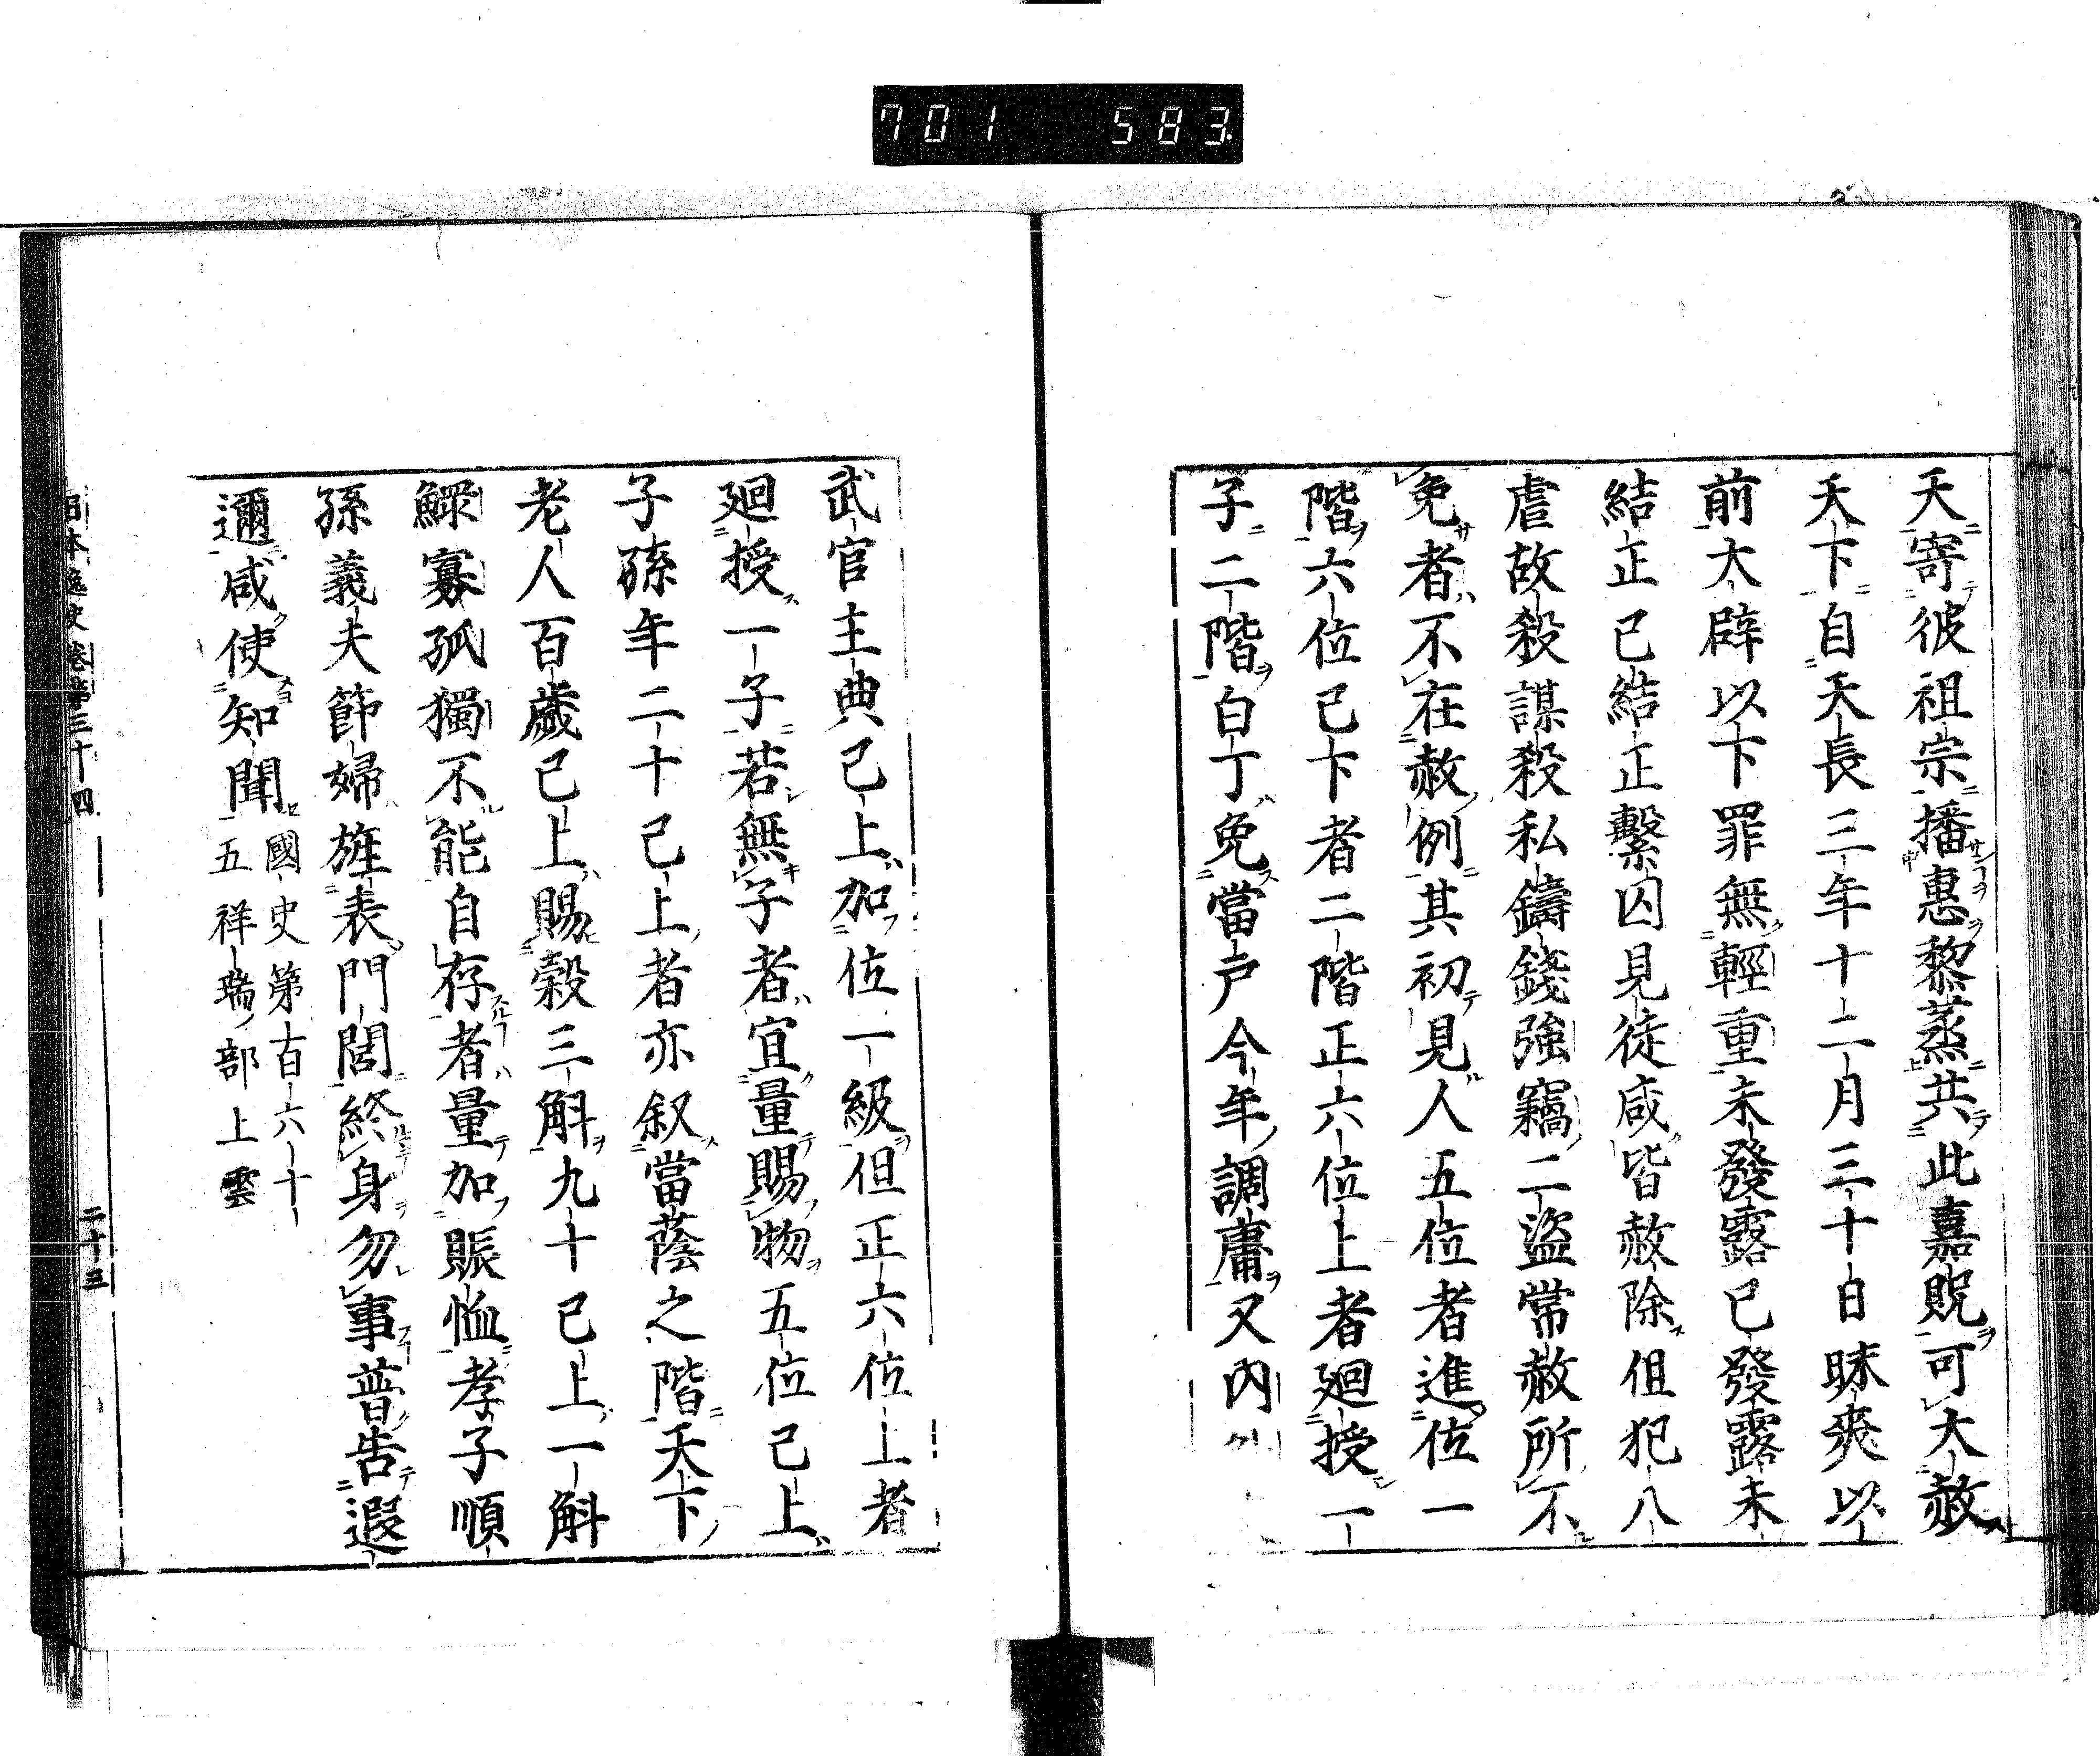 701 583
天寄彼祖宗播惠黎蒸共此嘉貺可大赦
天下自天長三年十二月三十日昧爽以
前大辟以下罪無輕重未發露已發露未
結正已結正繫囚見徒咸皆赦除但犯八
虐故殺謀殺私鑄錢強竊二盜常赦所不
免者不在赦例其初見人五位者進位一
階六位已下者二階正六位上者廻授一
子二階白丁免當戶今年調庸又內外
武官主典已上加位一級但正六位上者
廻授一子若無子者宜量賜物五位已上
子孫年二十已上者亦叙當蔭之階天下
老人百歲已上賜穀三斛九十已上一斛
鰥寡孤獨不能自存者量加賑恤孝子順
孫義夫節婦旌表門閭終身勿事普告遐
邇咸使知聞 國史第百六十
五祥瑞部上雲
日本逸史卷第三十四 二十三